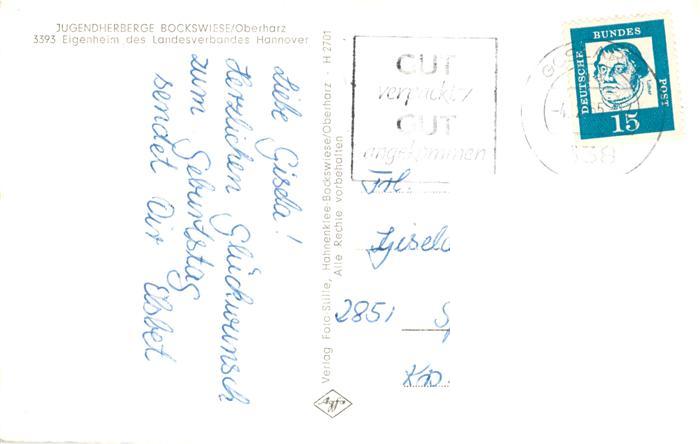 JUGENDHERBERGE BOCKSWIESE/Oberharz
3393 Eigenheim des Landesverbandes Hannover
Liebe Gisela!
Herzlichen Glückwunsch
zum Geburtstag
sendet Dir Elsbet
Verlag Foto-Stille, Hahnenklee-Bockswiese/Oberharz - H 2701
Alle Rechte vorbehalten
GUT
verpackt
GUT
angekommen
338
DEUTSCHE
BUNDES
POST
Luther
15
Frl.
Gisela
2851
Kr.